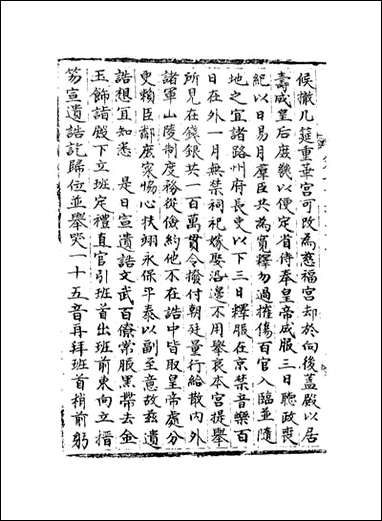 候撤几筵重華宮可改為慈福宮却於向後蓋殿以居
壽成皇后庶幾以便定省侍奉皇帝成服三日聽政喪
紀以日易月羣臣共為寬釋勿過摧傷百官入臨並隨
地之宜諸路州府長吏以下三日釋服在京禁音樂百
日在外一月無禁祠祀嫁娶沿邊不用舉哀本宮提舉
所見在錢銀共一百萬貫令撥付朝廷量行給散內外
諸軍山陵制度務從儉約他不在誥中皆取皇帝處分
更賴臣鄰庶寮惕心扶翊永保平泰以副至意故茲遺
誥想宜知悉 是日宣遺誥文武百僚常服黑帶去金
玉飾詣殿下立班定禮直官引班首出班前東向立搢
笏宣遺誥訖歸位並舉哭一十五音再拜班首稍前躬